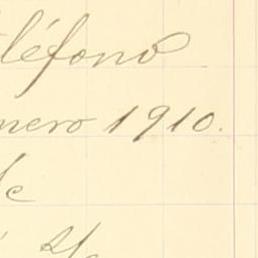 eléfono
nero 1910.